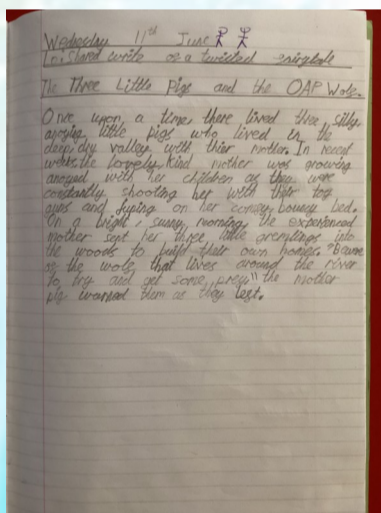 Wednesday 11th June
L.o. Shared write as a twisted fairytale
The Three Little Pigs and the OAP Wole.
Once upon a time, there lived three silly,
anoying little pigs who lived in the
deep, dry valley with thier mother. In recent
weeks the lovely, kind mother was growing
anoyed with her children as they were
constantly shooting her with their toy
guns and juping on her comfy bouncy bed.
On a bright, sunny morning, the experienced
mother sent her three little gremlings into
the woods to build their own homes. "Beware
of the wole that lives around the river
to try and get some prey" the mother
pig warned them as they lest.